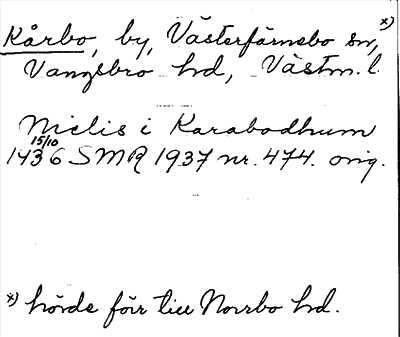 Kårbo, by, Västerfärnebo sn, x)
Vangsbro hd, Västm. l.
Nielis i Karabodhum
15/10
1436 SMR 1937 nr. 474. orig.
x) hörde förr till Norrbo hd.